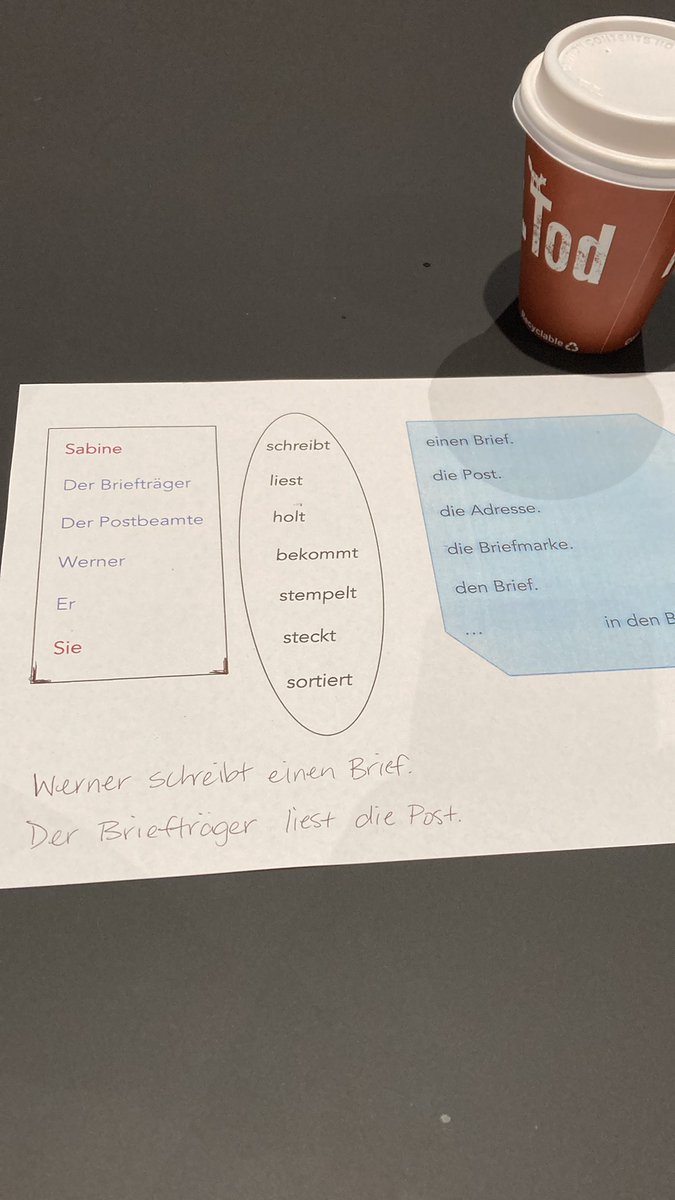 Tod
Recyclable
Sabine
Der Briefträger
Der Postbeamte
Werner
Er
Sie
schreibt
liest
holt
bekommt
stempelt
steckt
sortiert
einen Brief.
die Post.
die Adresse.
die Briefmarke.
den Brief.
... in den B
Werner schreibt einen Brief.
Der Briefträger liest die Post.